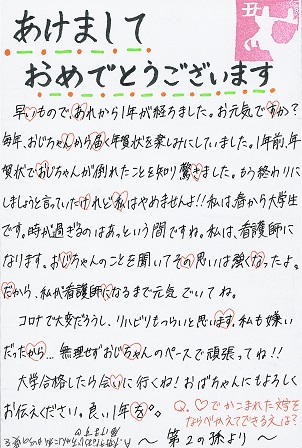 丑
あけまして
おめでとうございます
早いもので、あれから1年が経ちました。お元気ですか?
毎年、おじちゃんから届く年賀状を楽しみにしていました。1年前、年
賀状でおじちゃんが倒れたことを知り驚きました。もう終わりに
しましょうと言っていたけれど私はやめませんよ!!私は、春から大学生
です。時が過ぎるのはあっという間ですね。私は、看護師に
なります。おじちゃんのことを聞いてその思いは強くなったよ。
だから、私が看護師になるまで元気でいてね。
コロナで大変だろうし、リハビリもつらいと思います。私も嫌い
だったから…無理せずおじちゃんのペースで頑張ってね!!
大学合格したら会いに行くね!おばちゃんにもよろしく
お伝えください。良い1年を。
Q.♡でかこまれた文字を
ならべかえてできる文は?
〜第2の孫より〜